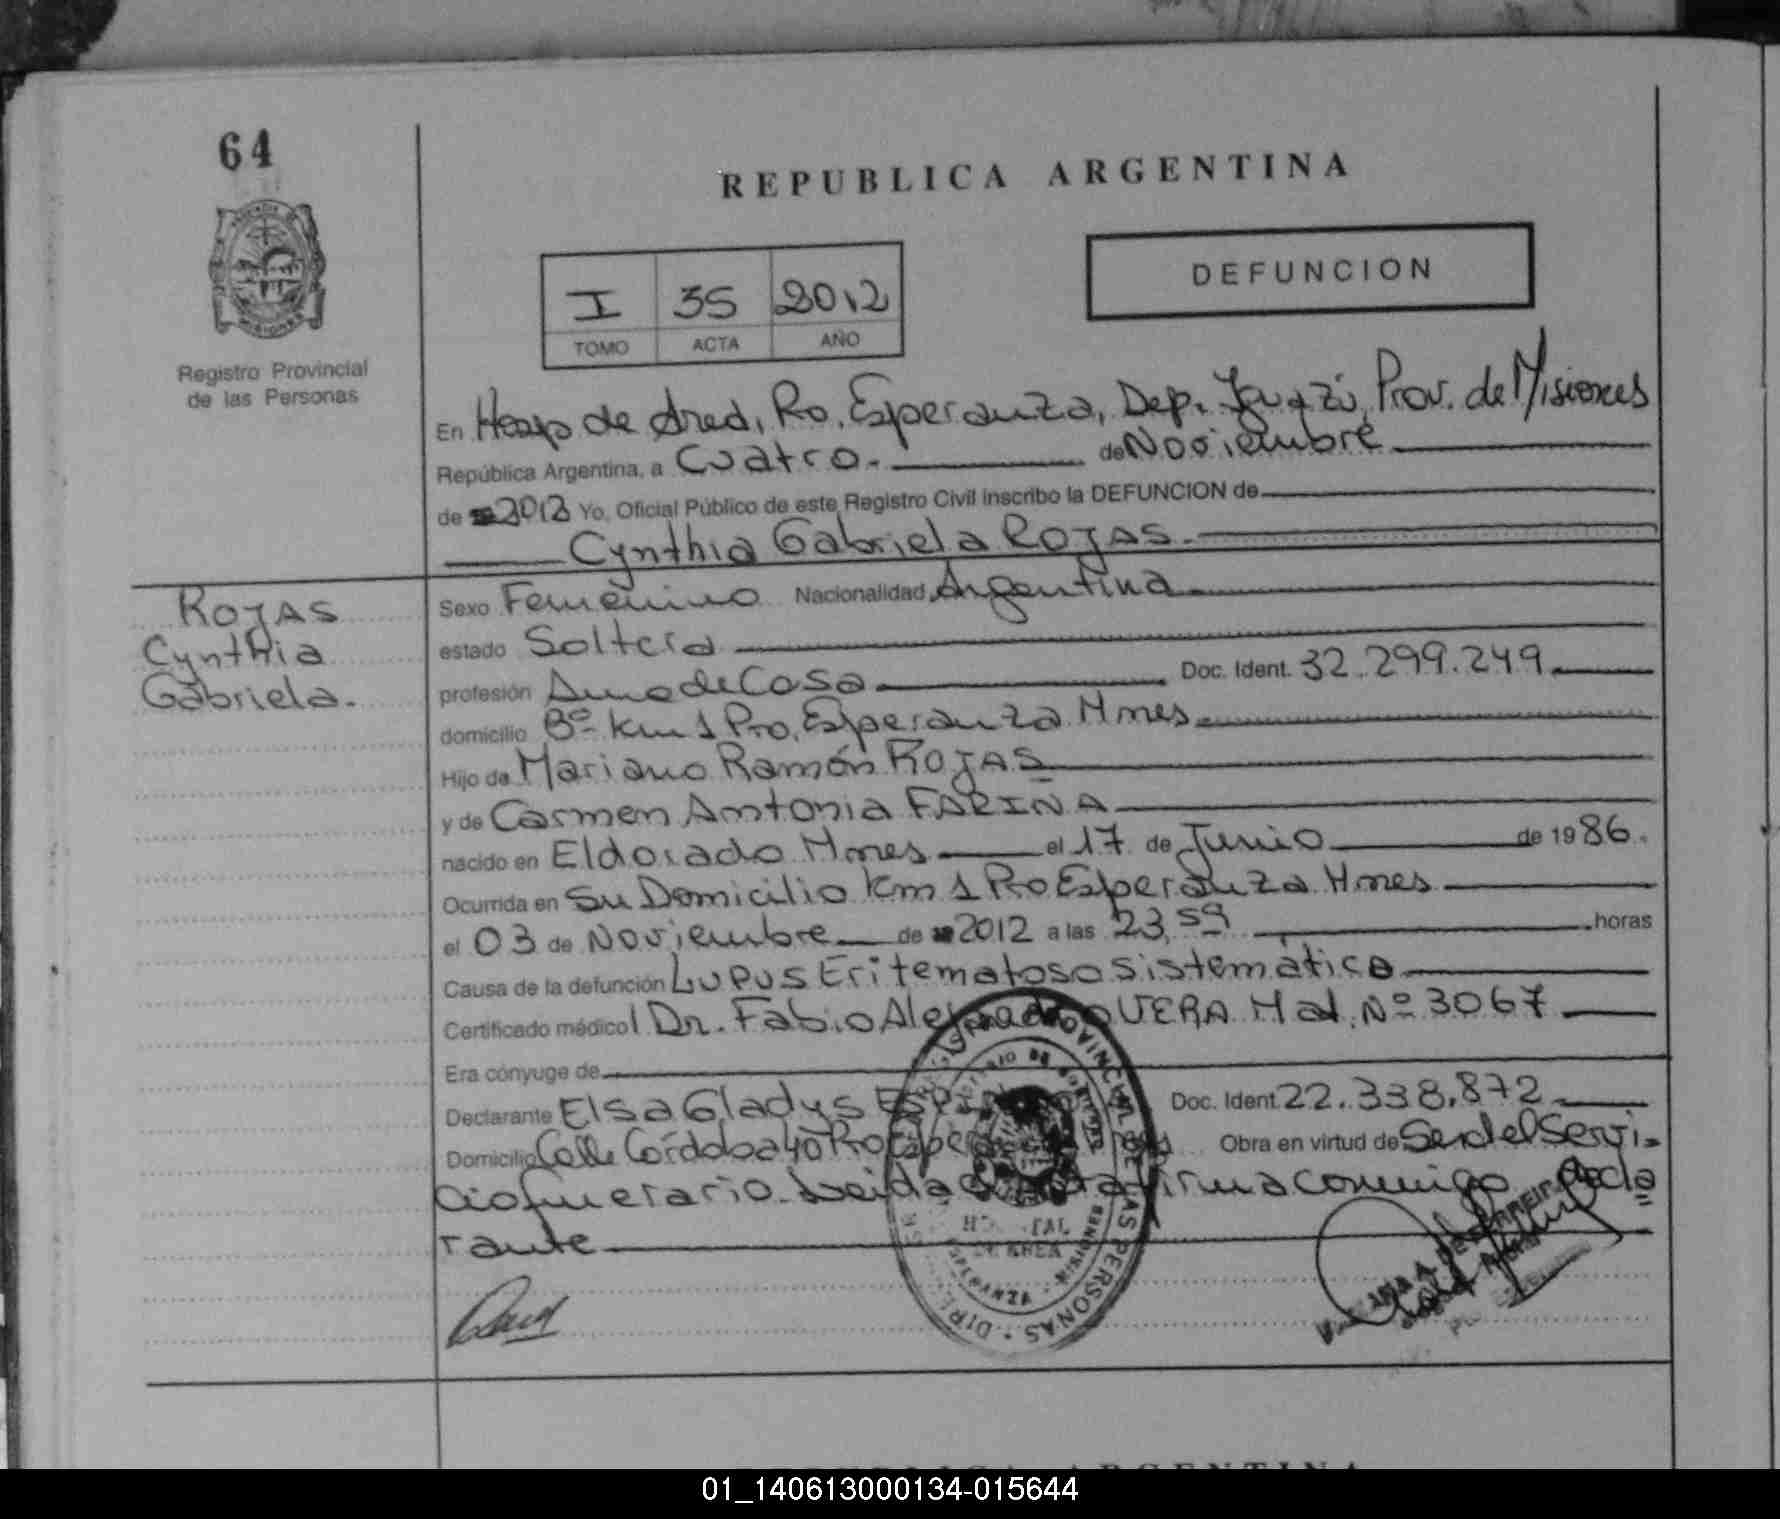 64
REPUBLICA ARGENTINA
I 35 2012
TOMO ACTA AÑO
DEFUNCION
MISIONES
Registro Provincial
de las Personas
En Hosp de Area, Pto. Esperanza, Dep. Iguazú, Prov. de Misiones
República Argentina, a Cuatro. de Noviembre
de 2012 Yo, Oficial Público de este Registro Civil inscribo la DEFUNCION de
Cynthia Gabriela ROJAS.
ROJAS
Cynthia
Gabriela.
Sexo Femenino Nacionalidad Argentina
estado Soltera
profesión Ama de Casa Doc. Ident. 32.299.249
domicilio Bº Km 1 Pto. Esperanza Mnes
Hijo de Mariano Ramón ROJAS
y de Carmen Antonia FARIÑA
nacido en Eldorado Mnes el 17 de Junio de 1986.
Ocurrida en Su Domicilio Km 1 Pto Esperanza Mnes
el 03 de Noviembre de 2012 a las 23,59 horas
Causa de la defunción Lupus Eritematoso Sistematico
Certificado médico Dr. Fabio Alejandro VERA Mat. Nº 3067
Era cónyuge de
Declarante Elsa Gladys Doc. Ident. 22.338.872
Domicilio Calle Córdoba 40 Pto Esperanza Obra en virtud de Ser del Servi-
cio funerario. Leida firma conmigo decla
rante
DIR. REGISTRO PROVINCIAL DE LAS PERSONAS
HOSPITAL
DE AREA
ESPERANZA - MISIONES
REPUBLICA ARGENTINA
01_140613000134-015644